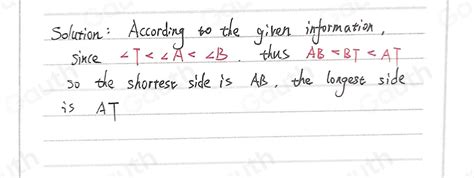 Solution: According to the given information,
since ∠T < ∠A < ∠B. thus AB < BT < AT
so the shortest side is AB, the longest side
is AT